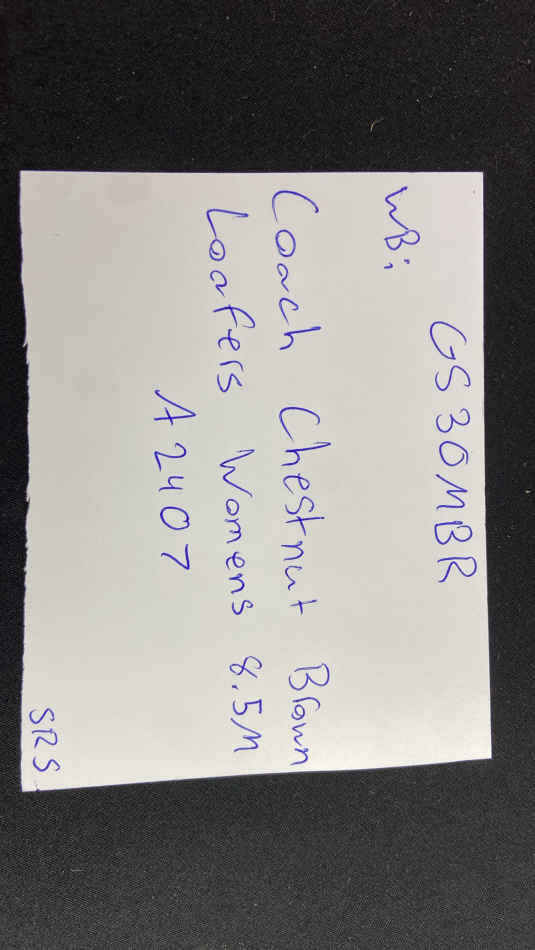 GS30MBR
WB;
Coach Chestnut Brown
Loafers Womens 8.5M
A2407
SRS